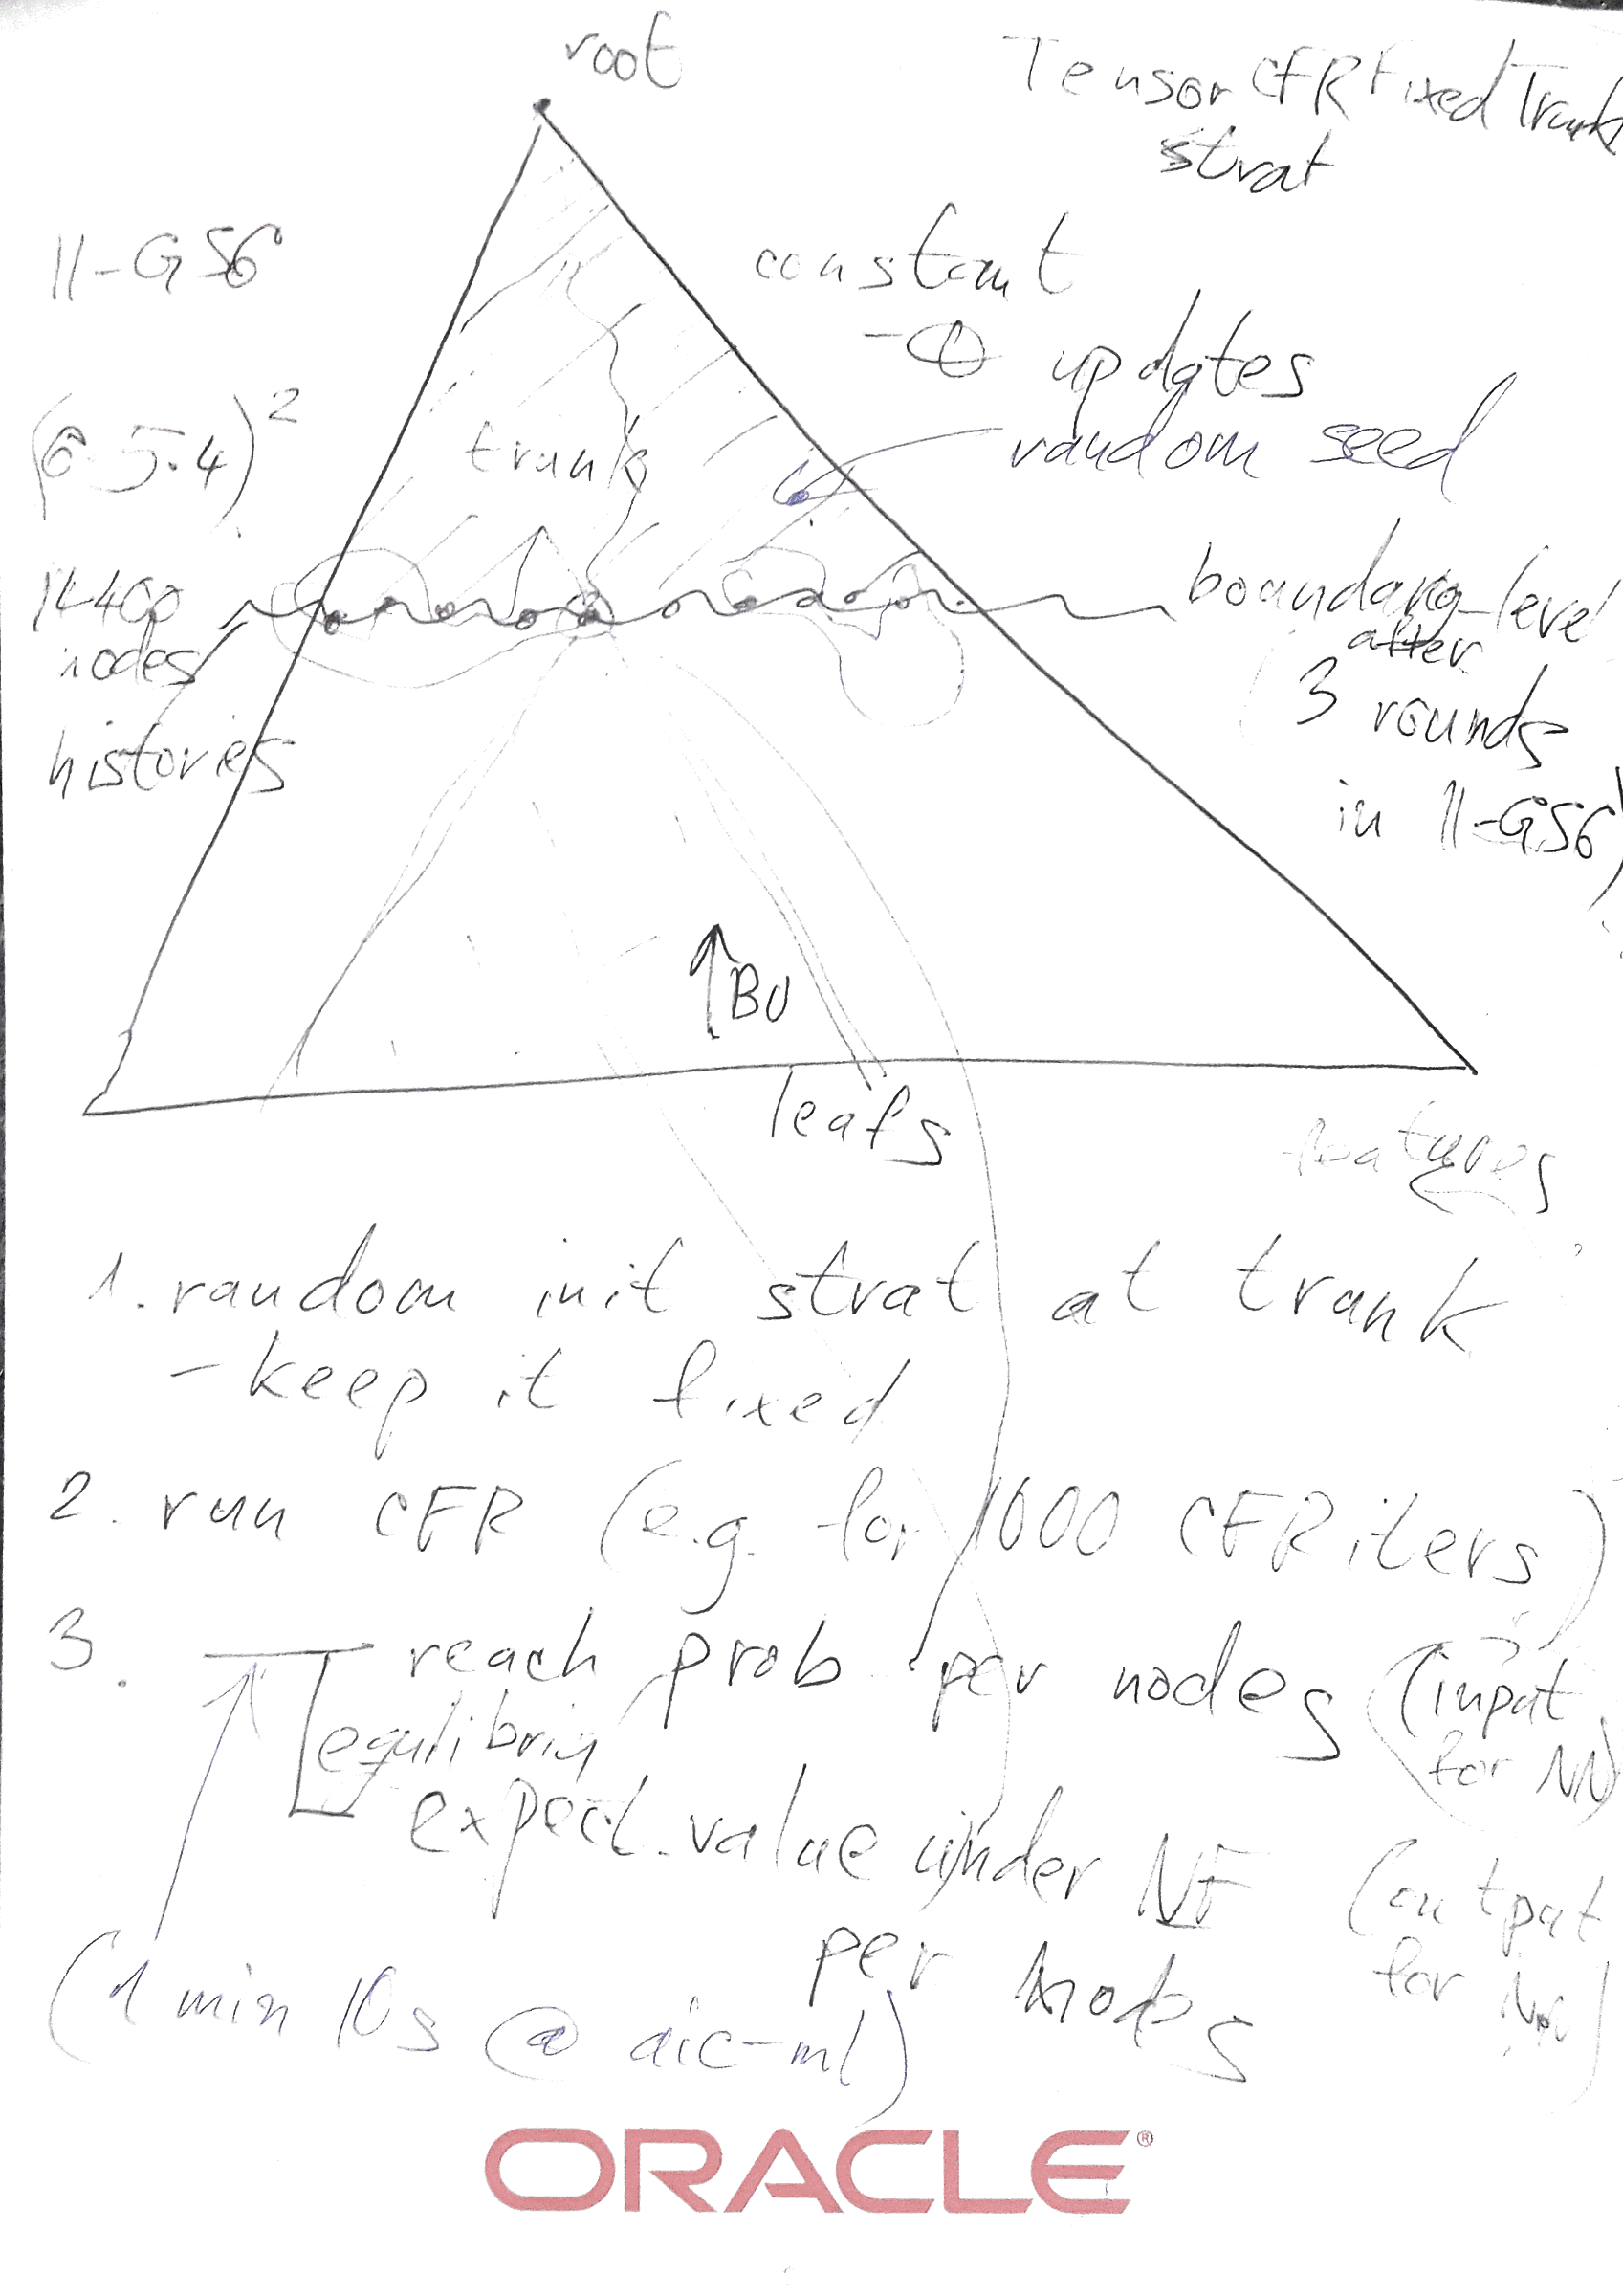 root
TensorCFRFixedTrunk
strat
II-GS6
constant
- 0 updates
random seed
(6·5·4)²
trunk
14400
nodes
histories
boundary-level
after
3 rounds
in II-GS6)
BU
leafs
features
1. random init strat at trunk
- keep it fixed
2. run CFR (e.g. for 1000 CFR iters)
3. reach prob per nodes (input
for NN)
equlibrium
expect. value under NE (output
per nodes for NN)
(1 min 10s @ aic-ml)
ORACLE®